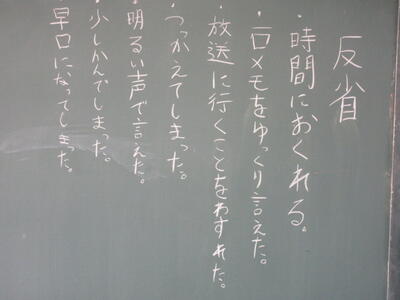 反省
・時間におくれる。
・一口メモをゆっくり言えた。
・放送に行くことをわすれた。
・つっかえてしまった。
・明るい声で言えた。
・少しかんでしまった。
早口になってしまった。